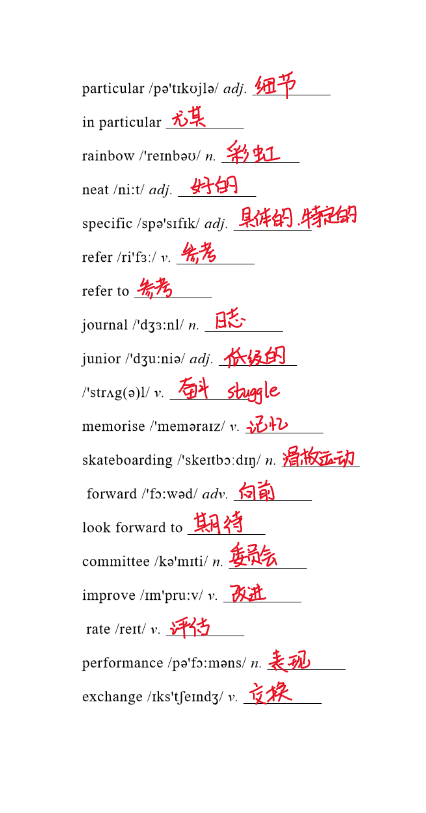 particular /pə'tɪkʊjlə/ adj. 细节
in particular 尤其
rainbow /'reɪnbəʊ/ n. 彩虹
neat /ni:t/ adj. 好的
specific /spə'sɪfɪk/ adj. 具体的、特定的
refer /ri'fɜ:/ v. 参考
refer to 参考
journal /'dʒɜ:nl/ n. 日志
junior /'dʒu:niə/ adj. 低级的
/'strʌg(ə)l/ v. 奋斗 stuggle
memorise /'meməraɪz/ v. 记忆
skateboarding /'skeɪtbɔ:dɪŋ/ n. 滑板运动
forward /'fɔ:wəd/ adv. 向前
look forward to 期待
committee /kə'mɪti/ n. 委员会
improve /ɪm'pru:v/ v. 改进
rate /reɪt/ v. 评估
performance /pə'fɔ:məns/ n. 表现
exchange /ɪks'tʃeɪndʒ/ v. 交换